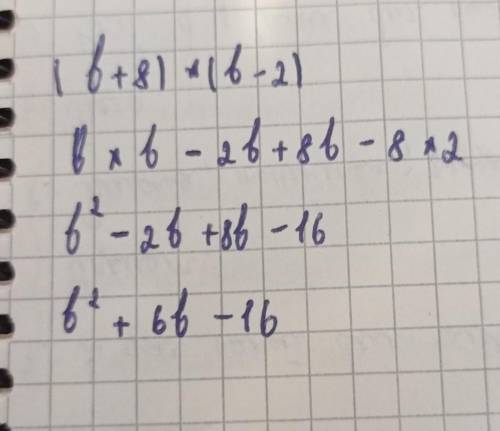 (b+8)×(b-2)
b×b-2b+8b-8×2
b²-2b+8b-16
b²+6b-16